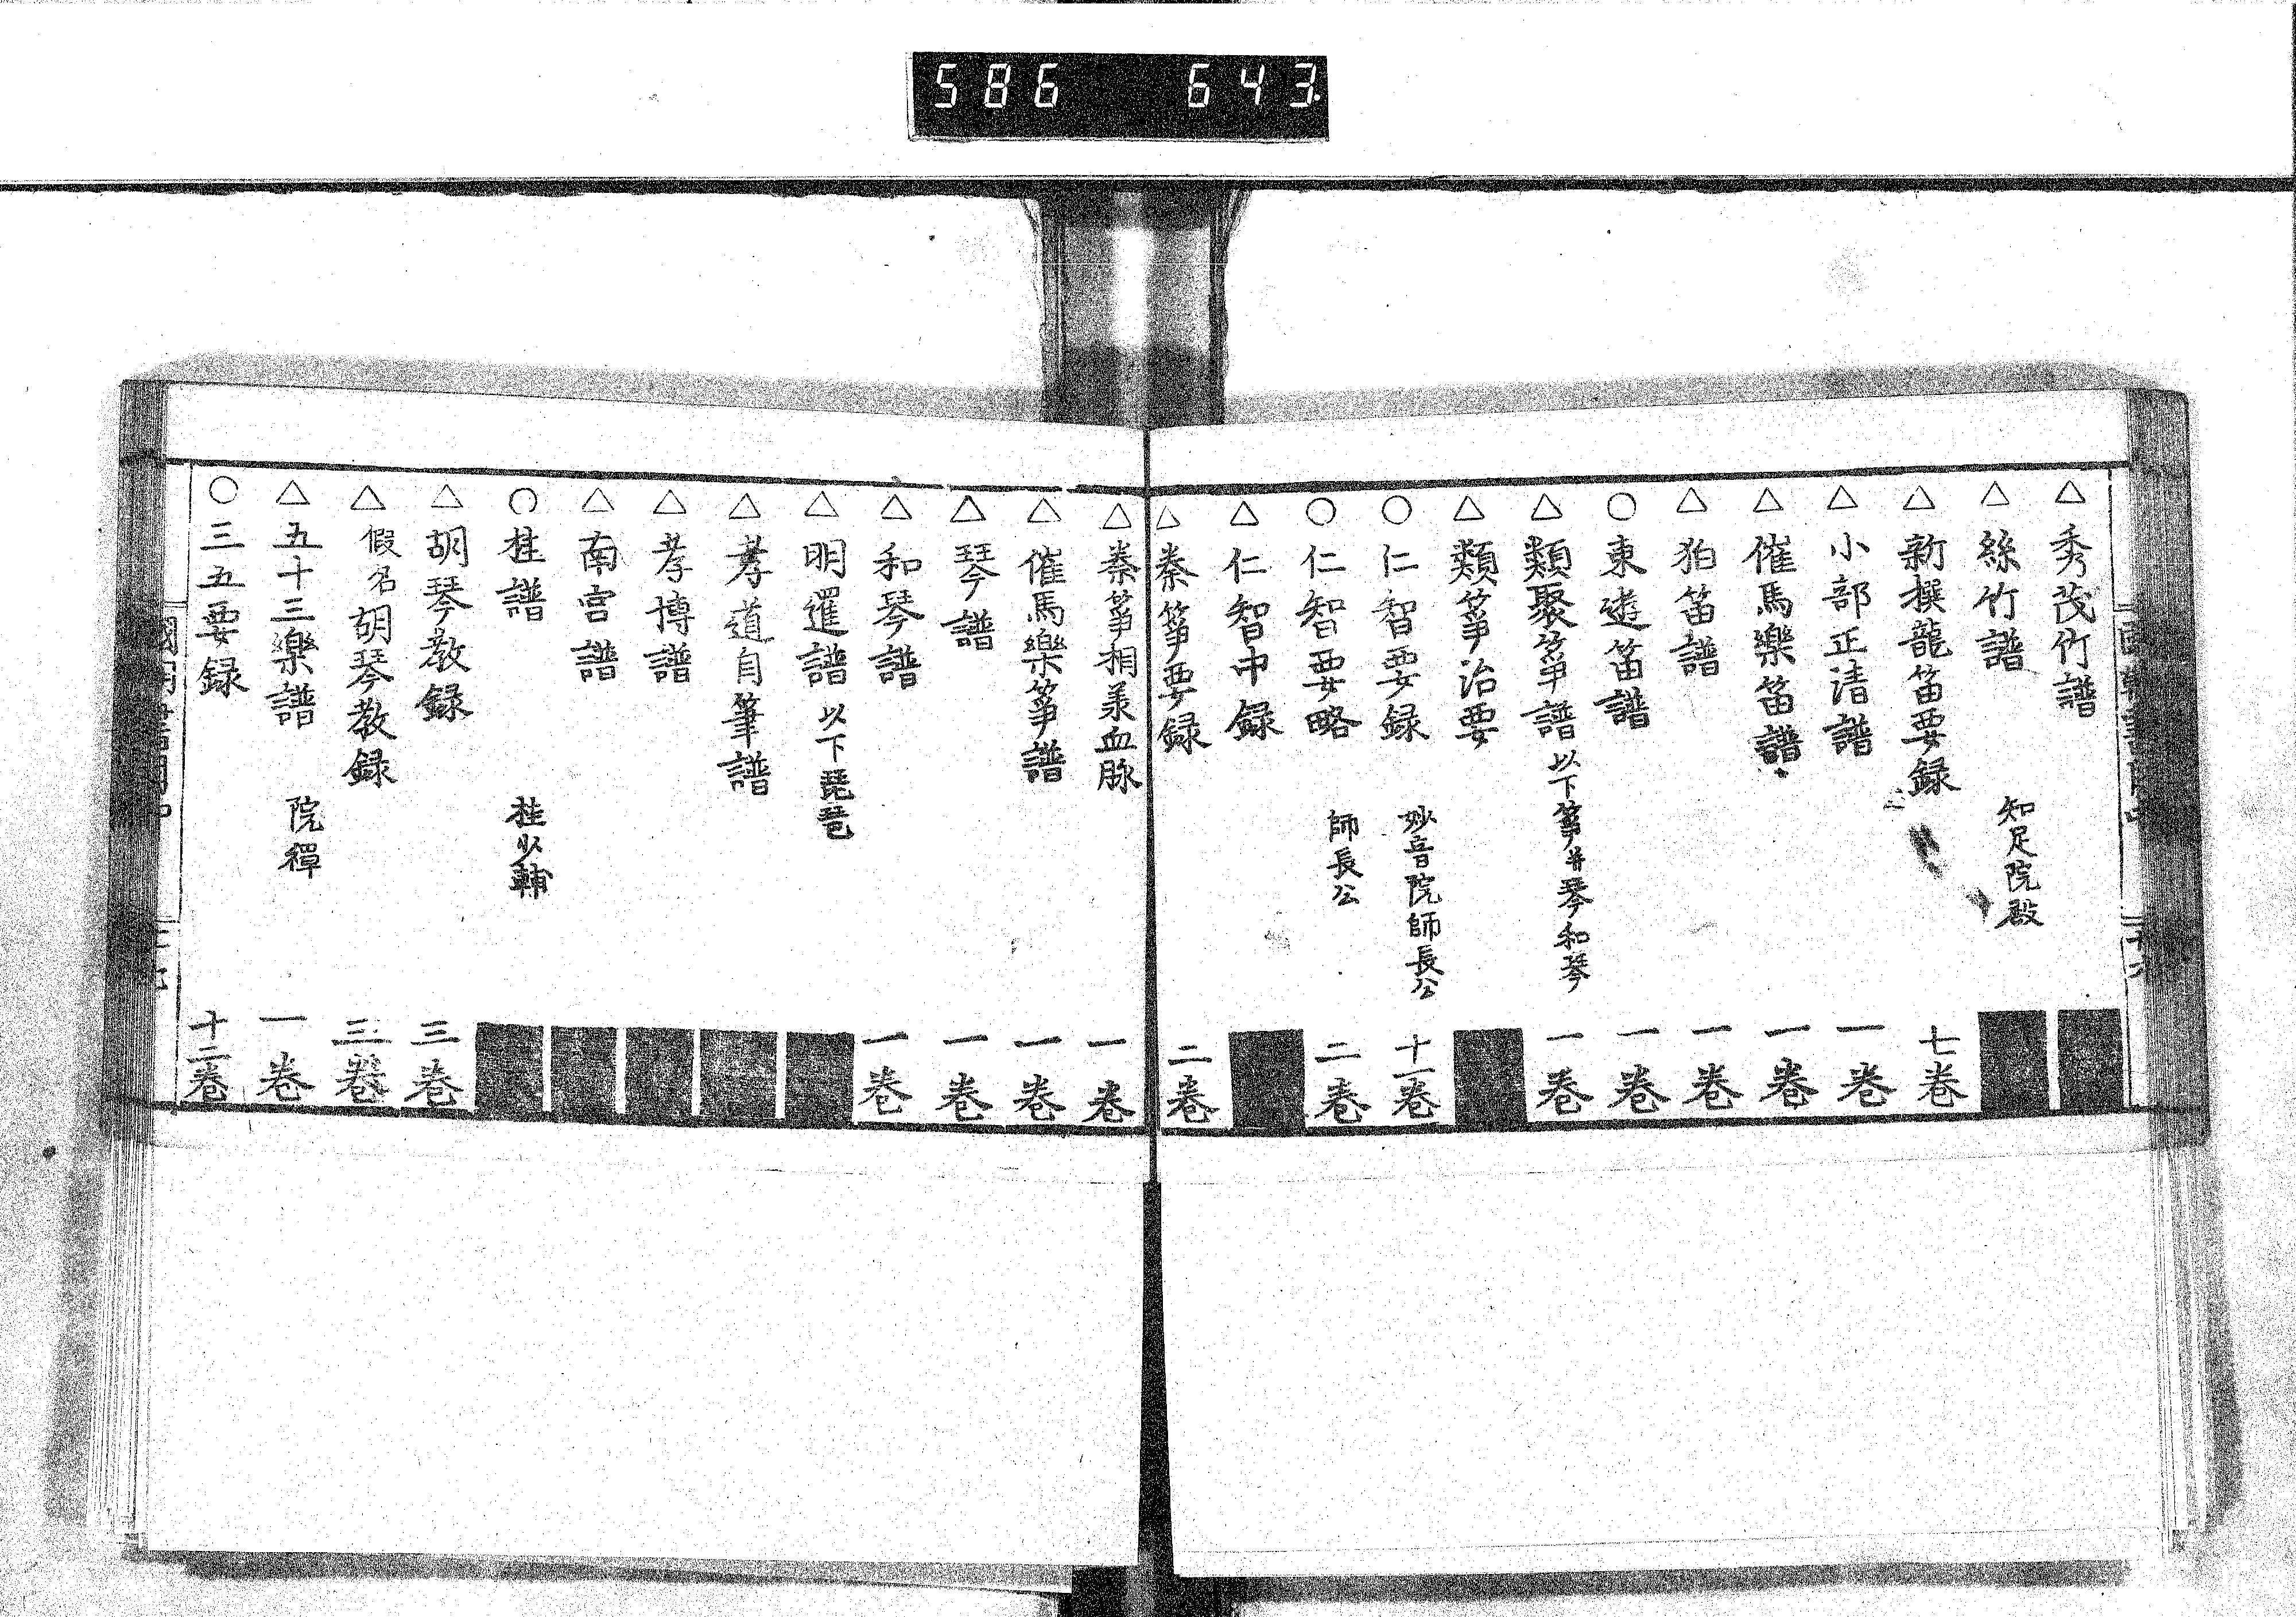 586 643
△秀茂竹譜
△絲竹譜 知足院殿
△新撰龍笛要録 七巻
△小部正清譜 一巻
△催馬樂笛譜 一巻
△狛笛譜 一巻
○東遊笛譜 一巻
△類聚箏譜 以下箏并琴和琴 一巻
△類箏治要
○仁智要録 妙音院師長公 十一巻
○仁智要略 師長公 二巻
△仁智中録
△秦箏要録 二巻
△秦箏相羕血脉 一巻
△催馬樂箏譜 一巻
△琴譜 一巻
△和琴譜 一巻
△明暹譜 以下琵琶
△孝道自筆譜
△孝博譜
△南宮譜
○桂譜 桂少輔
△胡琴教録 三巻
△假名胡琴教録 三巻
△五十三樂譜 院禪 一巻
○三五要録 十二巻